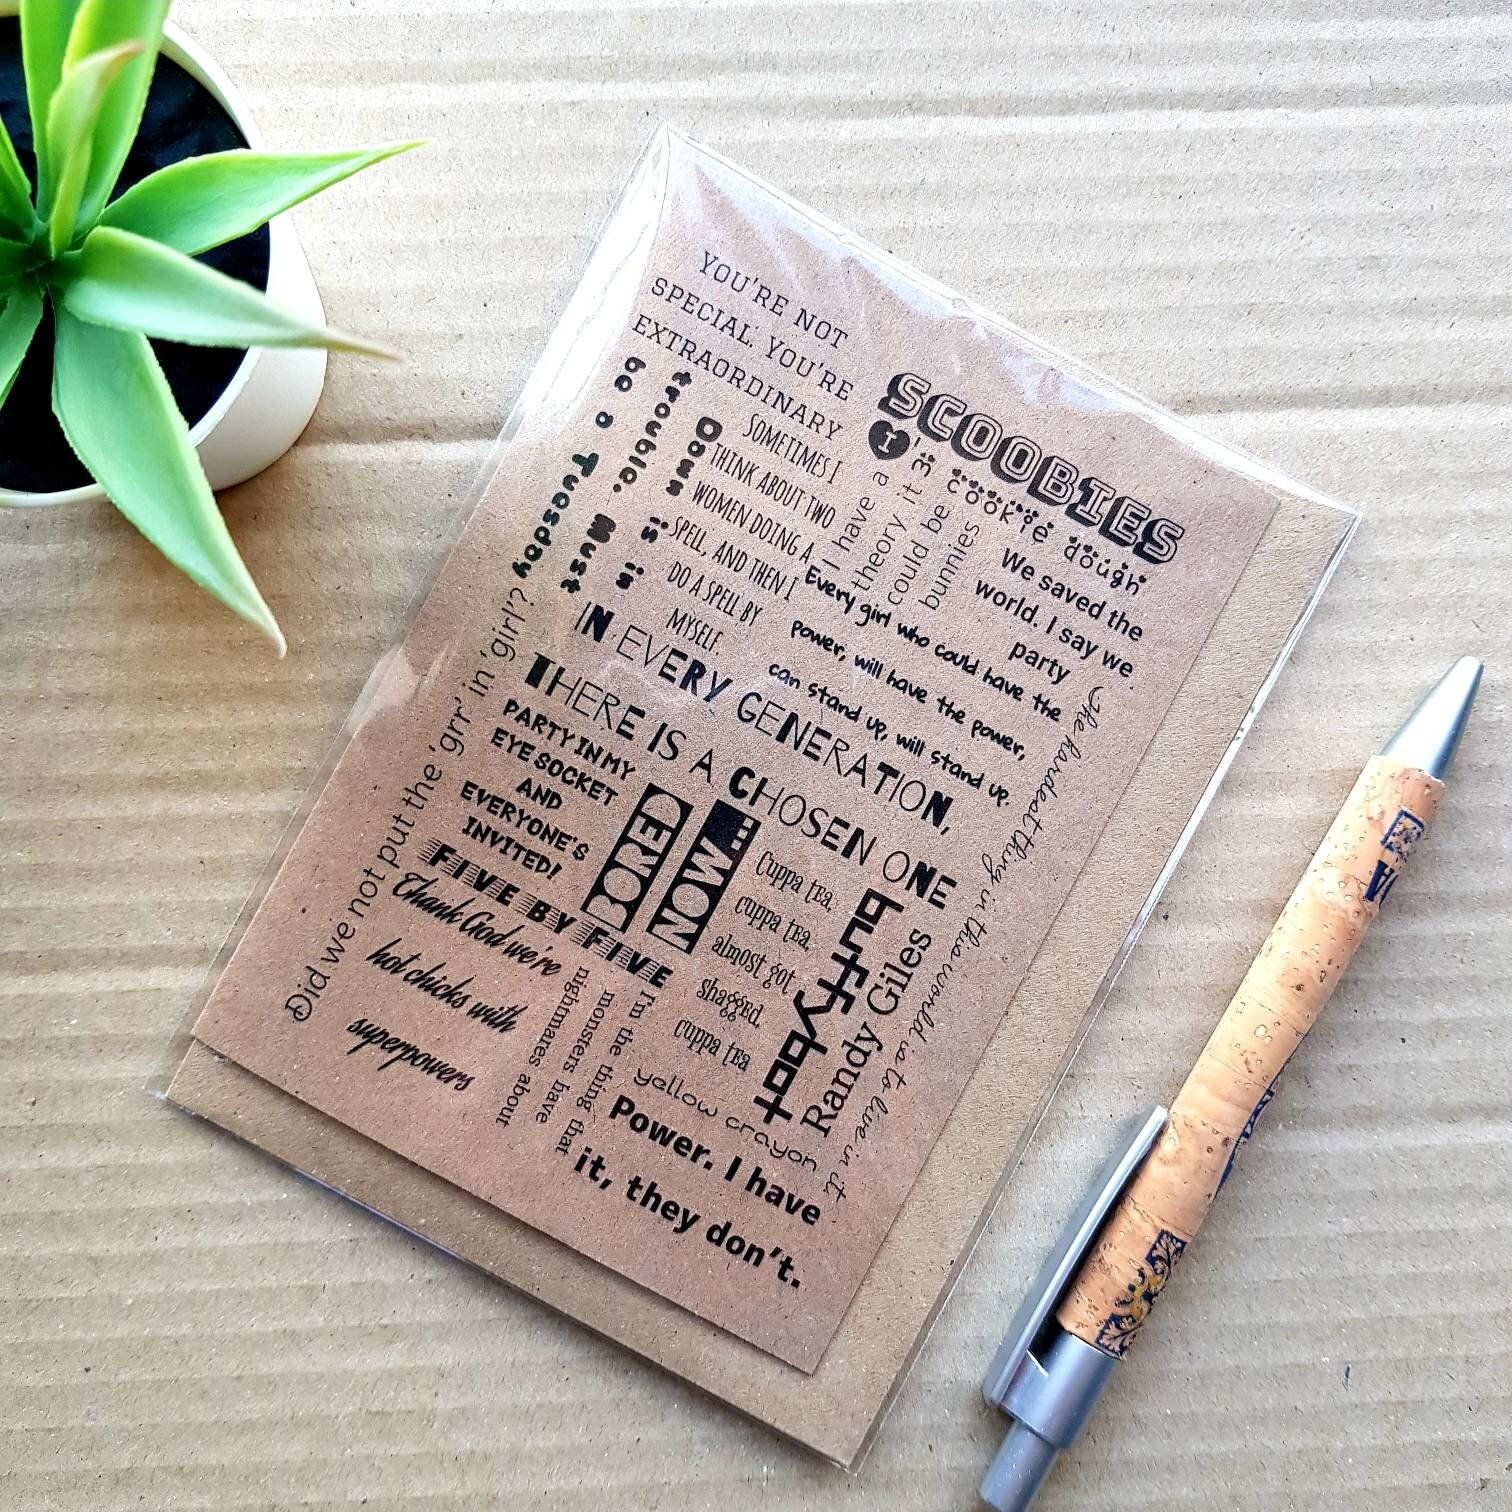 YOU'RE NOT
SPECIAL. YOU'RE
EXTRAORDINARY
SCOOBIES
I
I have a
theory it
could be
bunnies
cookie dough
We saved the
world. I say we
party
Dawn is in
trouble. Must
be a Tuesday
SOMETIMES I
THINK ABOUT TWO
WOMEN DOING A
SPELL, AND THEN I
DO A SPELL BY
MYSELF.
Every girl who could have the
power, will have the power,
can stand up, will stand up.
IN EVERY GENERATION,
THERE IS A CHOSEN ONE
The hardest thing in this world is to live in it
Did we not put the 'grr' in 'girl'?
PARTY IN MY
EYE SOCKET
AND
EVERYONE'S
INVITED!
BORED
NOW...
Cuppa tea,
cuppa tea,
almost got
shagged,
cuppa tea
buffybot
Randy Giles
FIVE BY FIVE
Thank God we're
hot chicks with
superpowers
I'm the thing that
monsters have
nightmares about
yellow crayon
Power. I have
it, they don't.